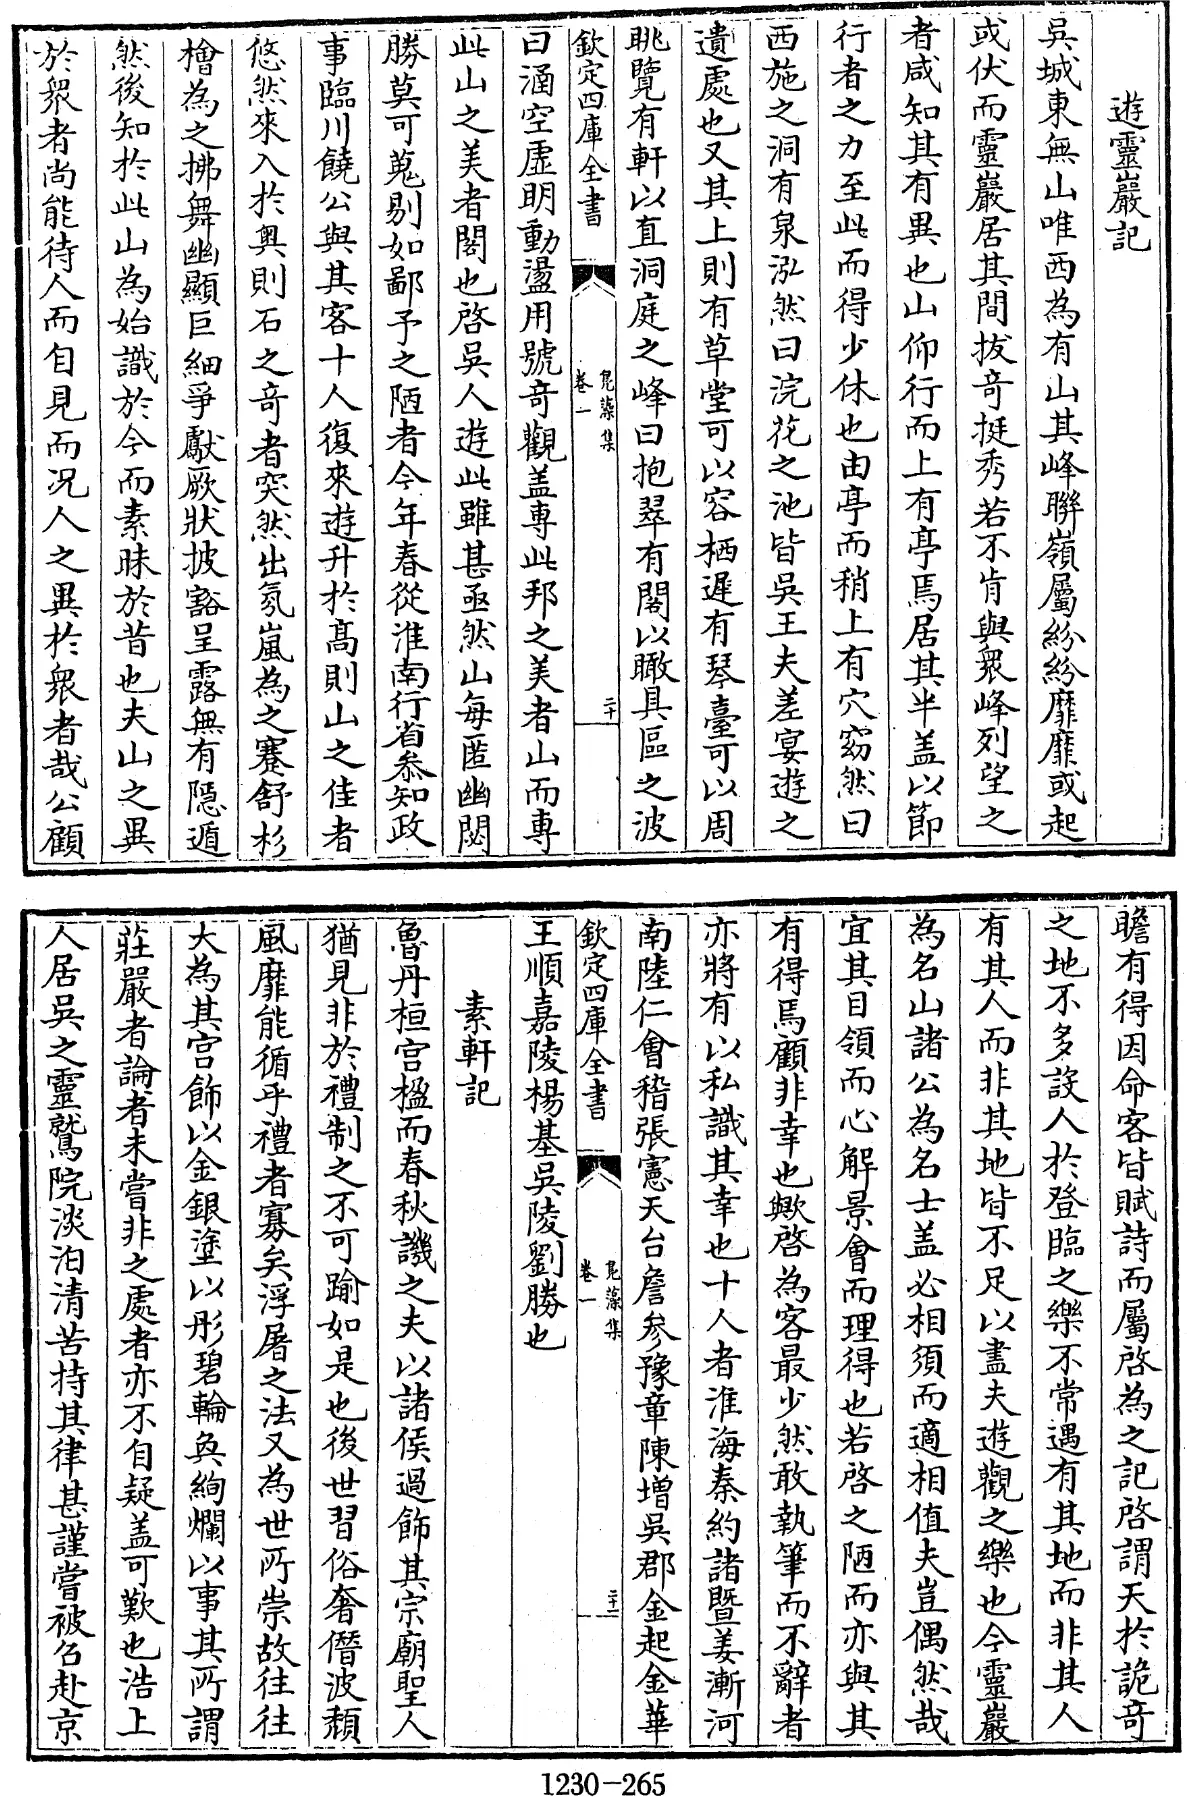 遊靈巖記
吳城東無山唯西為有山其峰聯嶺屬紛紛靡靡或起
或伏而靈巖居其間拔奇挺秀若不肯與衆峰列望之
者咸知其有異也山仰行而上有亭焉居其半盖以節
行者之力至此而得少休也由亭而稍上有穴窈然曰
西施之洞有泉泓然曰浣花之池皆吳王夫差宴遊之
遺處也又其上則有草堂可以容栖遲有琴臺可以周
眺覽有軒以直洞庭之峰曰抱翠有閣以瞰具區之波
欽定四庫全書
鳧藻集
卷一
二十
曰涵空虛明動盪用號奇觀盖專此邦之美者山而專
此山之美者閣也啓吳人遊此雖甚亟然山每匿幽閟
勝莫可蒐剔如鄙予之陋者今年春從淮南行省叅知政
事臨川饒公與其客十人復來遊升於髙則山之佳者
悠然來入於奥則石之奇者突然出氛嵐為之蹇舒杉
檜為之拂舞幽顯巨細爭獻厥狀披豁呈露無有隠遁
然後知於此山為始識於今而素昧於昔也夫山之異
於衆者尚能待人而自見而况人之異於衆者哉公顧
瞻有得因命客皆賦詩而屬啓為之記啓謂天於詭奇
之地不多設人於登臨之樂不常遇有其地而非其人
有其人而非其地皆不足以盡夫遊觀之樂也今靈巖
為名山諸公為名士盖必相須而適相值夫豈偶然哉
宜其目領而心解景會而理得也若啓之陋而亦與其
有得焉顧非幸也歟啓為客最少然敢執筆而不辭者
亦將有以私識其幸也十人者淮海秦約諸暨姜漸河
南陸仁會稽張憲天台詹參豫章陳增吳郡金起金華
欽定四庫全書
鳧藻集
卷一
二十一
王順嘉陵楊基吳陵劉勝也
素軒記
魯丹桓宫楹而春秋譏之夫以諸侯過飾其宗廟聖人
猶見非於禮制之不可踰如是也後世習俗奢僭波頽
風靡能循乎禮者寡矣浮屠之法又為世所崇故往往
大為其宫飾以金銀塗以彤碧輪奐絢爛以事其所謂
莊嚴者論者未嘗非之處者亦不自疑盖可歎也浩上
人居吳之靈鷲院淡泊清苦持其律甚謹嘗被召赴京
1230-265